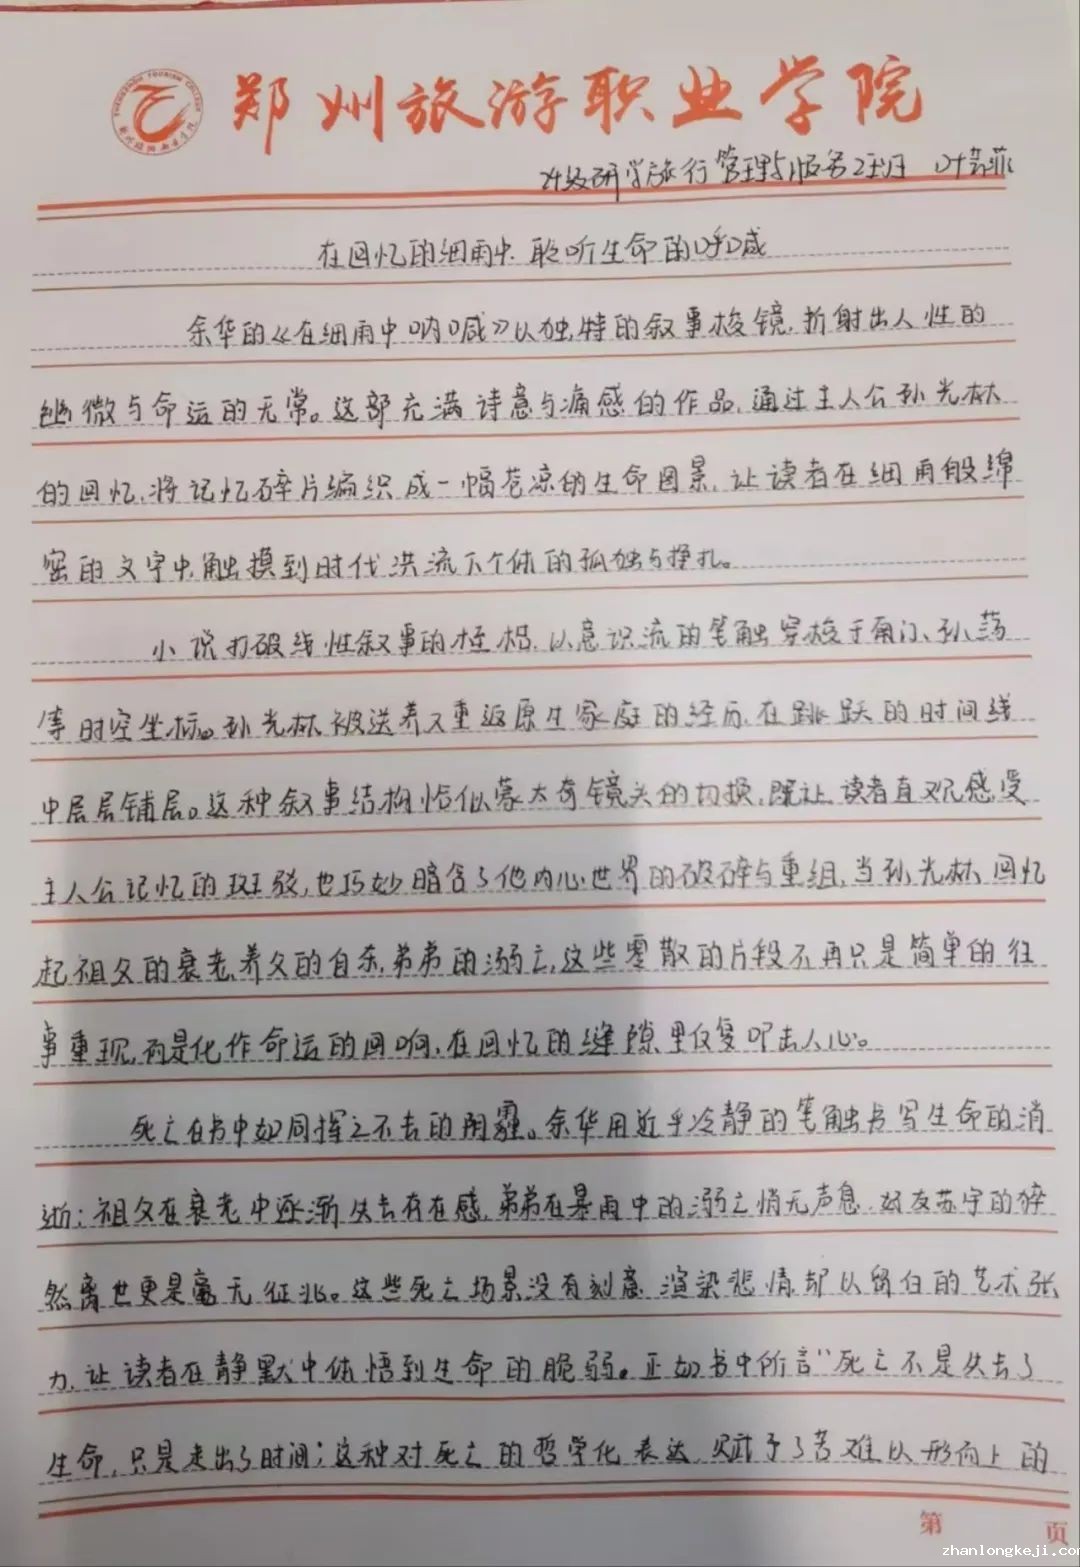 郑州旅游职业学院
ZHENGZHOU TOURISM COLLEGE
郑州旅游职业学院
24级研学旅行管理与服务2班 叶芸菲
在回忆的细雨中聆听生命的呼喊
余华的《在细雨中呐喊》以独特的叙事棱镜,折射出人性的
幽微与命运的无常。这部充满诗意与痛感的作品,通过主人公孙光林
的回忆,将记忆碎片编织成一幅苍凉的生命图景,让读者在细雨般绵
密的文字中,触摸到时代洪流下个体的孤独与挣扎。
小说打破线性叙事的桎梏,以意识流的笔触穿梭于南门、孙荡
等时空坐标。孙光林被送养又重返原生家庭的经历,在跳跃的时间线
中层层铺展。这种叙事结构恰似蒙太奇镜头的切换,既让读者直观感受
主人公记忆的斑驳,也巧妙暗含了他内心世界的破碎与重组,当孙光林回忆
起祖父的衰老、养父的自杀,弟弟的溺亡,这些零散的片段不再只是简单的往
事重现,而是化作命运的回响,在回忆的缝隙里反复叩击人心。
死亡在书中如同挥之不去的阴霾。余华用近乎冷静的笔触书写生命的消
逝:祖父在衰老中逐渐失去存在感,弟弟在暴雨中的溺亡悄无声息,好友苏宇的猝
然离世更是毫无征兆。这些死亡场景没有刻意渲染悲情,却以留白的艺术张
力,让读者在静默中体悟到生命的脆弱。正如书中所言“死亡不是失去了
生命,只是走出了时间;这种对死亡的哲学化表达,赋予了苦难以形而上的
第 页
zhanlongkeji.com